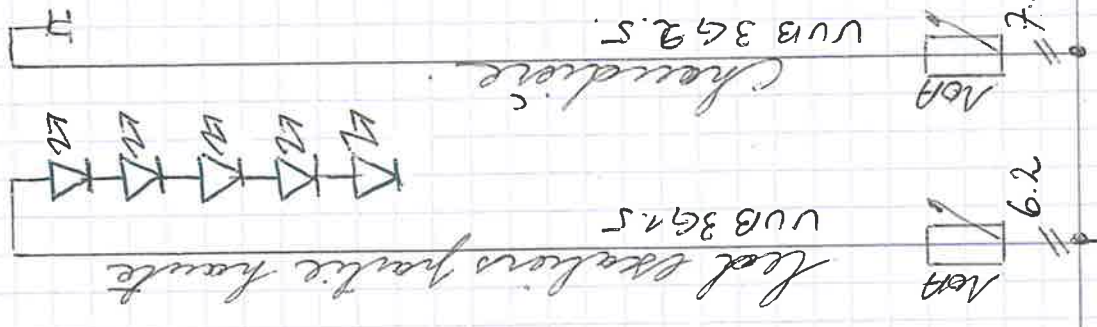 10A
led escaliers partie haute
6.2
VVB 3G1.5
10A
Chaudière
VVB 3G2.5